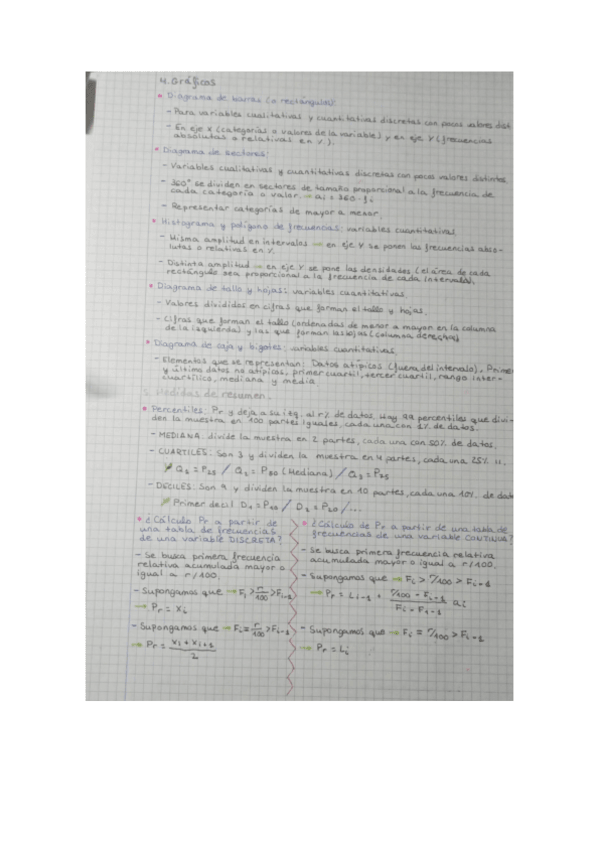 4. Gráficos
• Diagrama de barras (o rectángulos):
- Para variables cualitativas y cuantitativas discretas con pocos valores dist
- En eje X (categorías o valores de la variable) y en eje Y (frecuencias
absolutas o relativas en %.).
• Diagrama de sectores:
- Variables cualitativas y cuantitativas discretas con pocos valores distintos.
- 360° se dividen en sectores de tamaño proporcional a la frecuencia de
cada categoría o valor. → ai = 360 · fi
- Representar categorías de mayor a menor.
• Histograma y polígono de frecuencias: variables cuantitativas.
- Misma amplitud en intervalos → en eje Y se ponen las frecuencias abso-
lutas o relativas en %.
- Distinta amplitud → en eje Y se pone las densidades (el área de cada
rectángulo sea proporcional a la frecuencia de cada intervalo).
• Diagrama de tallo y hojas: variables cuantitativas.
- Valores divididos en cifras que forman el tallo y hojas.
- Cifras que forman el tallo (ordenadas de menor a mayor en la columna
de la izquierda) y las que forman las hojas (columna derecha)
• Diagrama de caja y bigotes: variables cuantitativas.
- Elementos que se representan: Datos atípicos (fuera del intervalo), Prime
y último datos no atípicos, primer cuartil, tercer cuartil, rango inter-
cuartílico, mediana y media.
5. Medidas de resumen.
• Percentiles: Pr y deja a su izq. al r% de datos. Hay 99 percentiles que divi-
den la muestra en 100 partes iguales, cada una con 1% de datos.
- MEDIANA: divide la muestra en 2 partes, cada una con 50% de datos.
- CUARTILES: Son 3 y dividen la muestra en 4 partes, cada una 25% ıı.
Q1 = P25 / Q2 = P50 (Mediana) / Q3 = P75
- DECILES: Son 9 y dividen la muestra en 10 partes, cada una 10% de dat
Primer decil D1 = P10 / D2 = P20 / ...
• ¿Cálculo Pr a partir de
una tabla de frecuencias
de una variable DISCRETA?
- Se busca primera frecuencia
relativa acumulada mayor o
igual a r/100.
- Supongamos que → Fi > r/100 > Fi-1
→ Pr = xi
- Supongamos que → Fi = r/100 > Fi-1
→ Pr = (xi + xi+1)/2
• ¿Cálculo de Pr a partir de una tabla de
frecuencias de una variable CONTINUA?
- Se busca primera frecuencia relativa
acumulada mayor o igual a r/100.
- Supongamos que → Fi > r/100 > Fi-1
→ Pr = Li-1 + (r/100 - Fi-1)/(Fi - Fi-1) ai
- Supongamos que → Fi = r/100 > Fi-1
→ Pr = Li